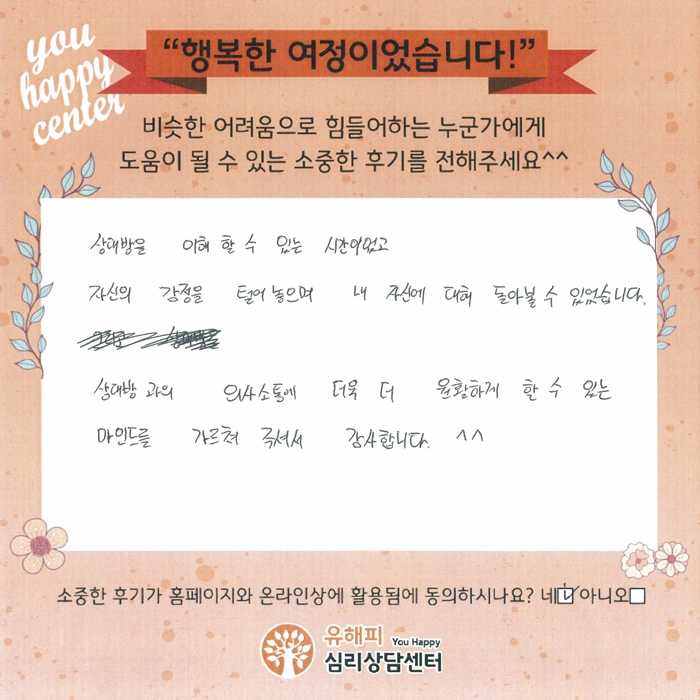 you
happy
center
“행복한 여정이었습니다!”
비슷한 어려움으로 힘들어하는 누군가에게
도움이 될 수 있는 소중한 후기를 전해주세요^^
상대방을 이해 할 수 있는 시간이었고
자신의 감정을 털어 놓으며 내 자신에 대해 돌아볼 수 있었습니다.
상대방 과의 의사소통에 더욱 더 원활하게 할 수 있는
마인드를 가르쳐 주셔서 감사합니다. ^^
소중한 후기가 홈페이지와 온라인상에 활용됨에 동의하시나요? 네☑아니오□
유해피 You Happy
심리상담센터